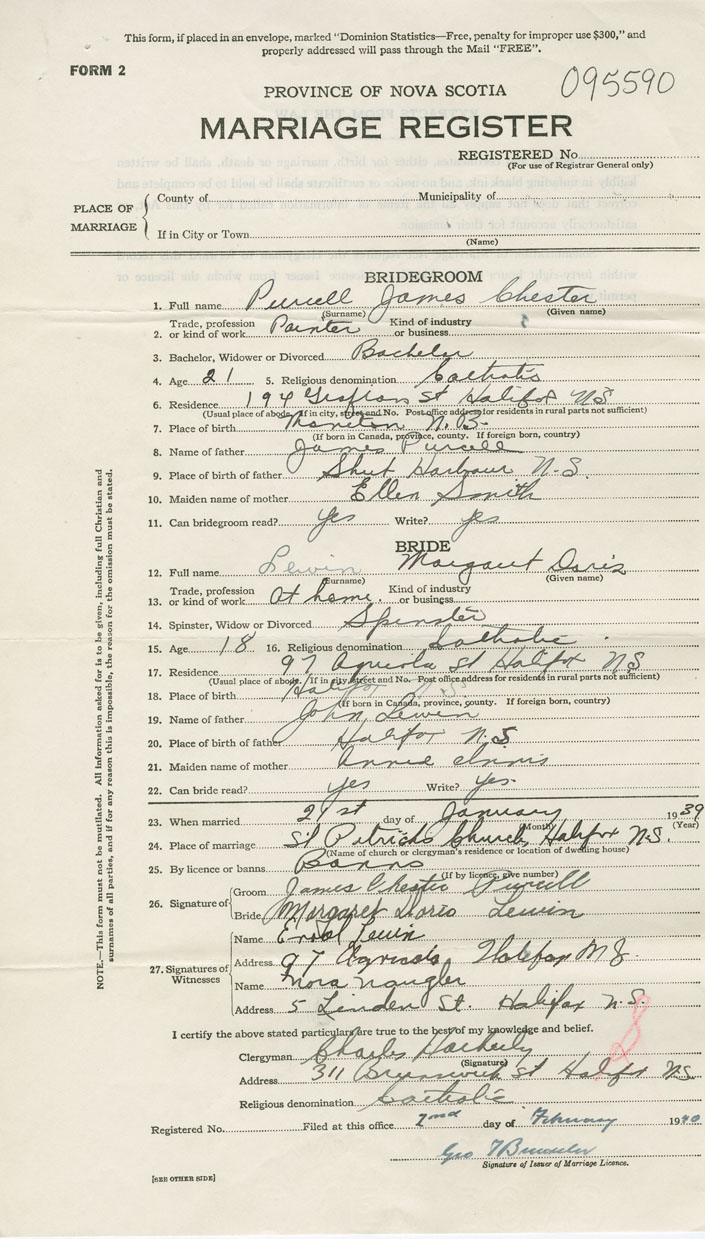 This form, if placed in an envelope, marked "Dominion Statistics—Free, penalty for improper use $300," and
properly addressed will pass through the Mail "FREE".
FORM 2
095590
PROVINCE OF NOVA SCOTIA
MARRIAGE REGISTER
REGISTERED No.
(For use of Registrar General only)
PLACE OF MARRIAGE
County of Municipality of
If in City or Town
(Name)
BRIDEGROOM
1. Full name Purcell James Chester
(Surname) (Given name)
2. Trade, profession or kind of work Painter Kind of industry or business
3. Bachelor, Widower or Divorced Bachelor
4. Age 21 5. Religious denomination Catholic
6. Residence 194 Grafton St Halifax N.S
(Usual place of abode. If in city, street and No. Post office address for residents in rural parts not sufficient)
7. Place of birth N.B.
(If born in Canada, province, county. If foreign born, country)
8. Name of father James Purcell
9. Place of birth of father Shut Harbour N.S.
10. Maiden name of mother Ellen Smith
11. Can bridegroom read? yes Write? yes
BRIDE
12. Full name Lewin Margaret Doris
(Surname) (Given name)
13. Trade, profession or kind of work At home. Kind of industry or business
14. Spinster, Widow or Divorced Spinster
15. Age 18 16. Religious denomination Catholic
17. Residence 97 Agricola St Halifax N.S
(Usual place of abode. If in city, street and No. Post office address for residents in rural parts not sufficient)
18. Place of birth Halifax
(If born in Canada, province, county. If foreign born, country)
19. Name of father John Lewin
20. Place of birth of father Halifax N.S.
21. Maiden name of mother Annie Innis
22. Can bride read? yes Write? yes.
23. When married 21st day of January 1939
(Month) (Year)
24. Place of marriage St Patricks Church, Halifax N.S.
(Name of church or clergyman's residence or location of dwelling house)
25. By licence or banns Banns
(If by licence, give number)
26. Signature of
Groom James Chester Purcell
Bride Margaret Doris Lewin
27. Signatures of Witnesses
Name Errol Lewin
Address 97 Agricola Halifax
Name Nora Naugler
Address 5 Linden St. Halifax N.S.
I certify the above stated particulars are true to the best of my knowledge and belief.
Clergyman Charles
(Signature)
Address 311 Brunswick St Halifax N.S.
Religious denomination Catholic
Registered No. Filed at this office 2nd day of February 1940
Geo
Signature of Issuer of Marriage Licence.
[SEE OTHER SIDE]
NOTE.—This form must not be mutilated. All information asked for is to be given, including full Christian and
surnames of all parties, and if for any reason this is impossible, the reason for the omission must be stated.